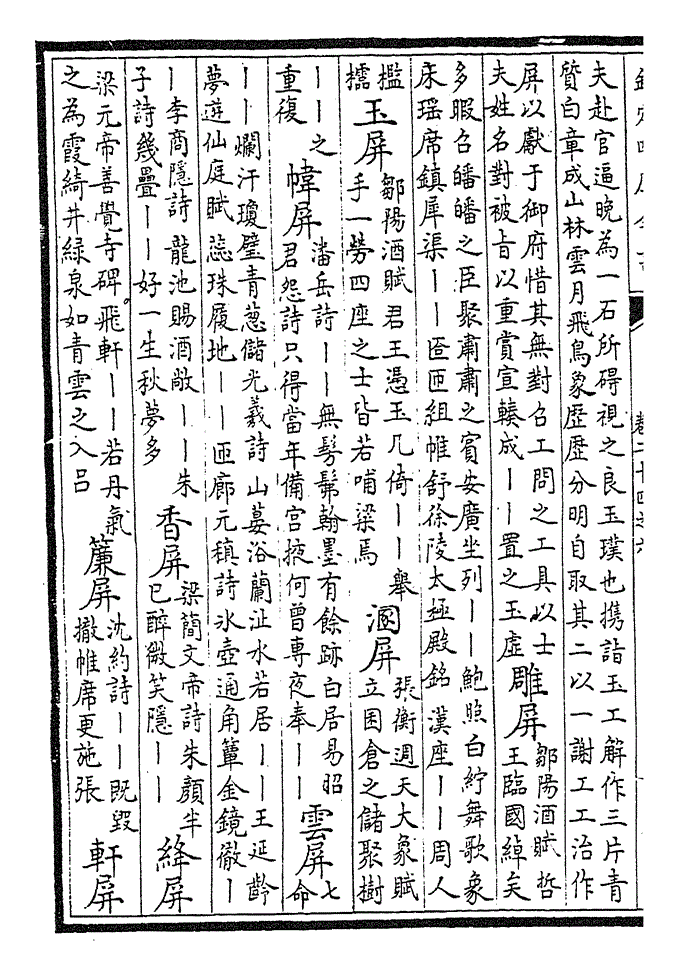 卷二十四之六
夫赴官逼晚為一石所碍視之良玉璞也攜詣玉工解作三片青
質白章成山林雲月飛鳥象歷歷分明自取其二以一謝工工治作
屏以獻于御府惜其無對召工問之工具以士
夫姓名對被旨以重賞宣輳成丨丨置之玉虛
雕屏
鄒陽酒賦哲
王臨國綽矣
多暇召皤皤之臣聚肅肅之賓安廣坐列丨丨鮑照白紵舞歌象
床瑶席鎮犀渠丨丨匼匝組帷舒徐陵太極殿銘漢座丨丨周人
檻
擩
玉屏
鄒陽酒賦君王憑玉几倚丨丨舉
手一勞四座之士皆若哺梁焉
溷屏
張衡週天大象賦
立囷倉之儲聚樹
丨丨之
重復
幃屏
潘岳詩丨丨無髣髴翰墨有餘跡白居易昭
君怨詩只得當年備宮掖何曾專夜奉丨丨
雲屏
七
命
丨丨爛汗瓊璧青葱儲光羲詩山蔞浴蘭沚水若居丨丨王延齡
夢遊仙庭賦蕊珠履地丨丨匝廊元稹詩冰壺通角簟金鏡徹丨
丨李商隱詩龍池賜酒敞丨丨朱
子詩幾疊丨丨好一生秋夢多
香屏
梁簡文帝詩朱顏半
已醉微笑隱丨丨
絳屏
梁元帝善覺寺碑。飛軒丨丨若丹氣
之為霞綺井綠泉如青雲之入呂
簾屏
沈約詩丨丨既毀
撤帷席更施張
軒屏